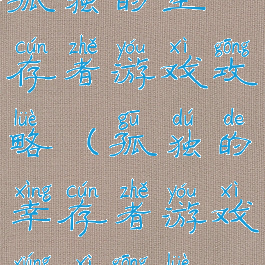 孤独的
cún zhě yóu xì gōng
存者游戏攻
lüè gū dú de
略(孤独的
xìng cún zhě yóu xì
幸存者游戏